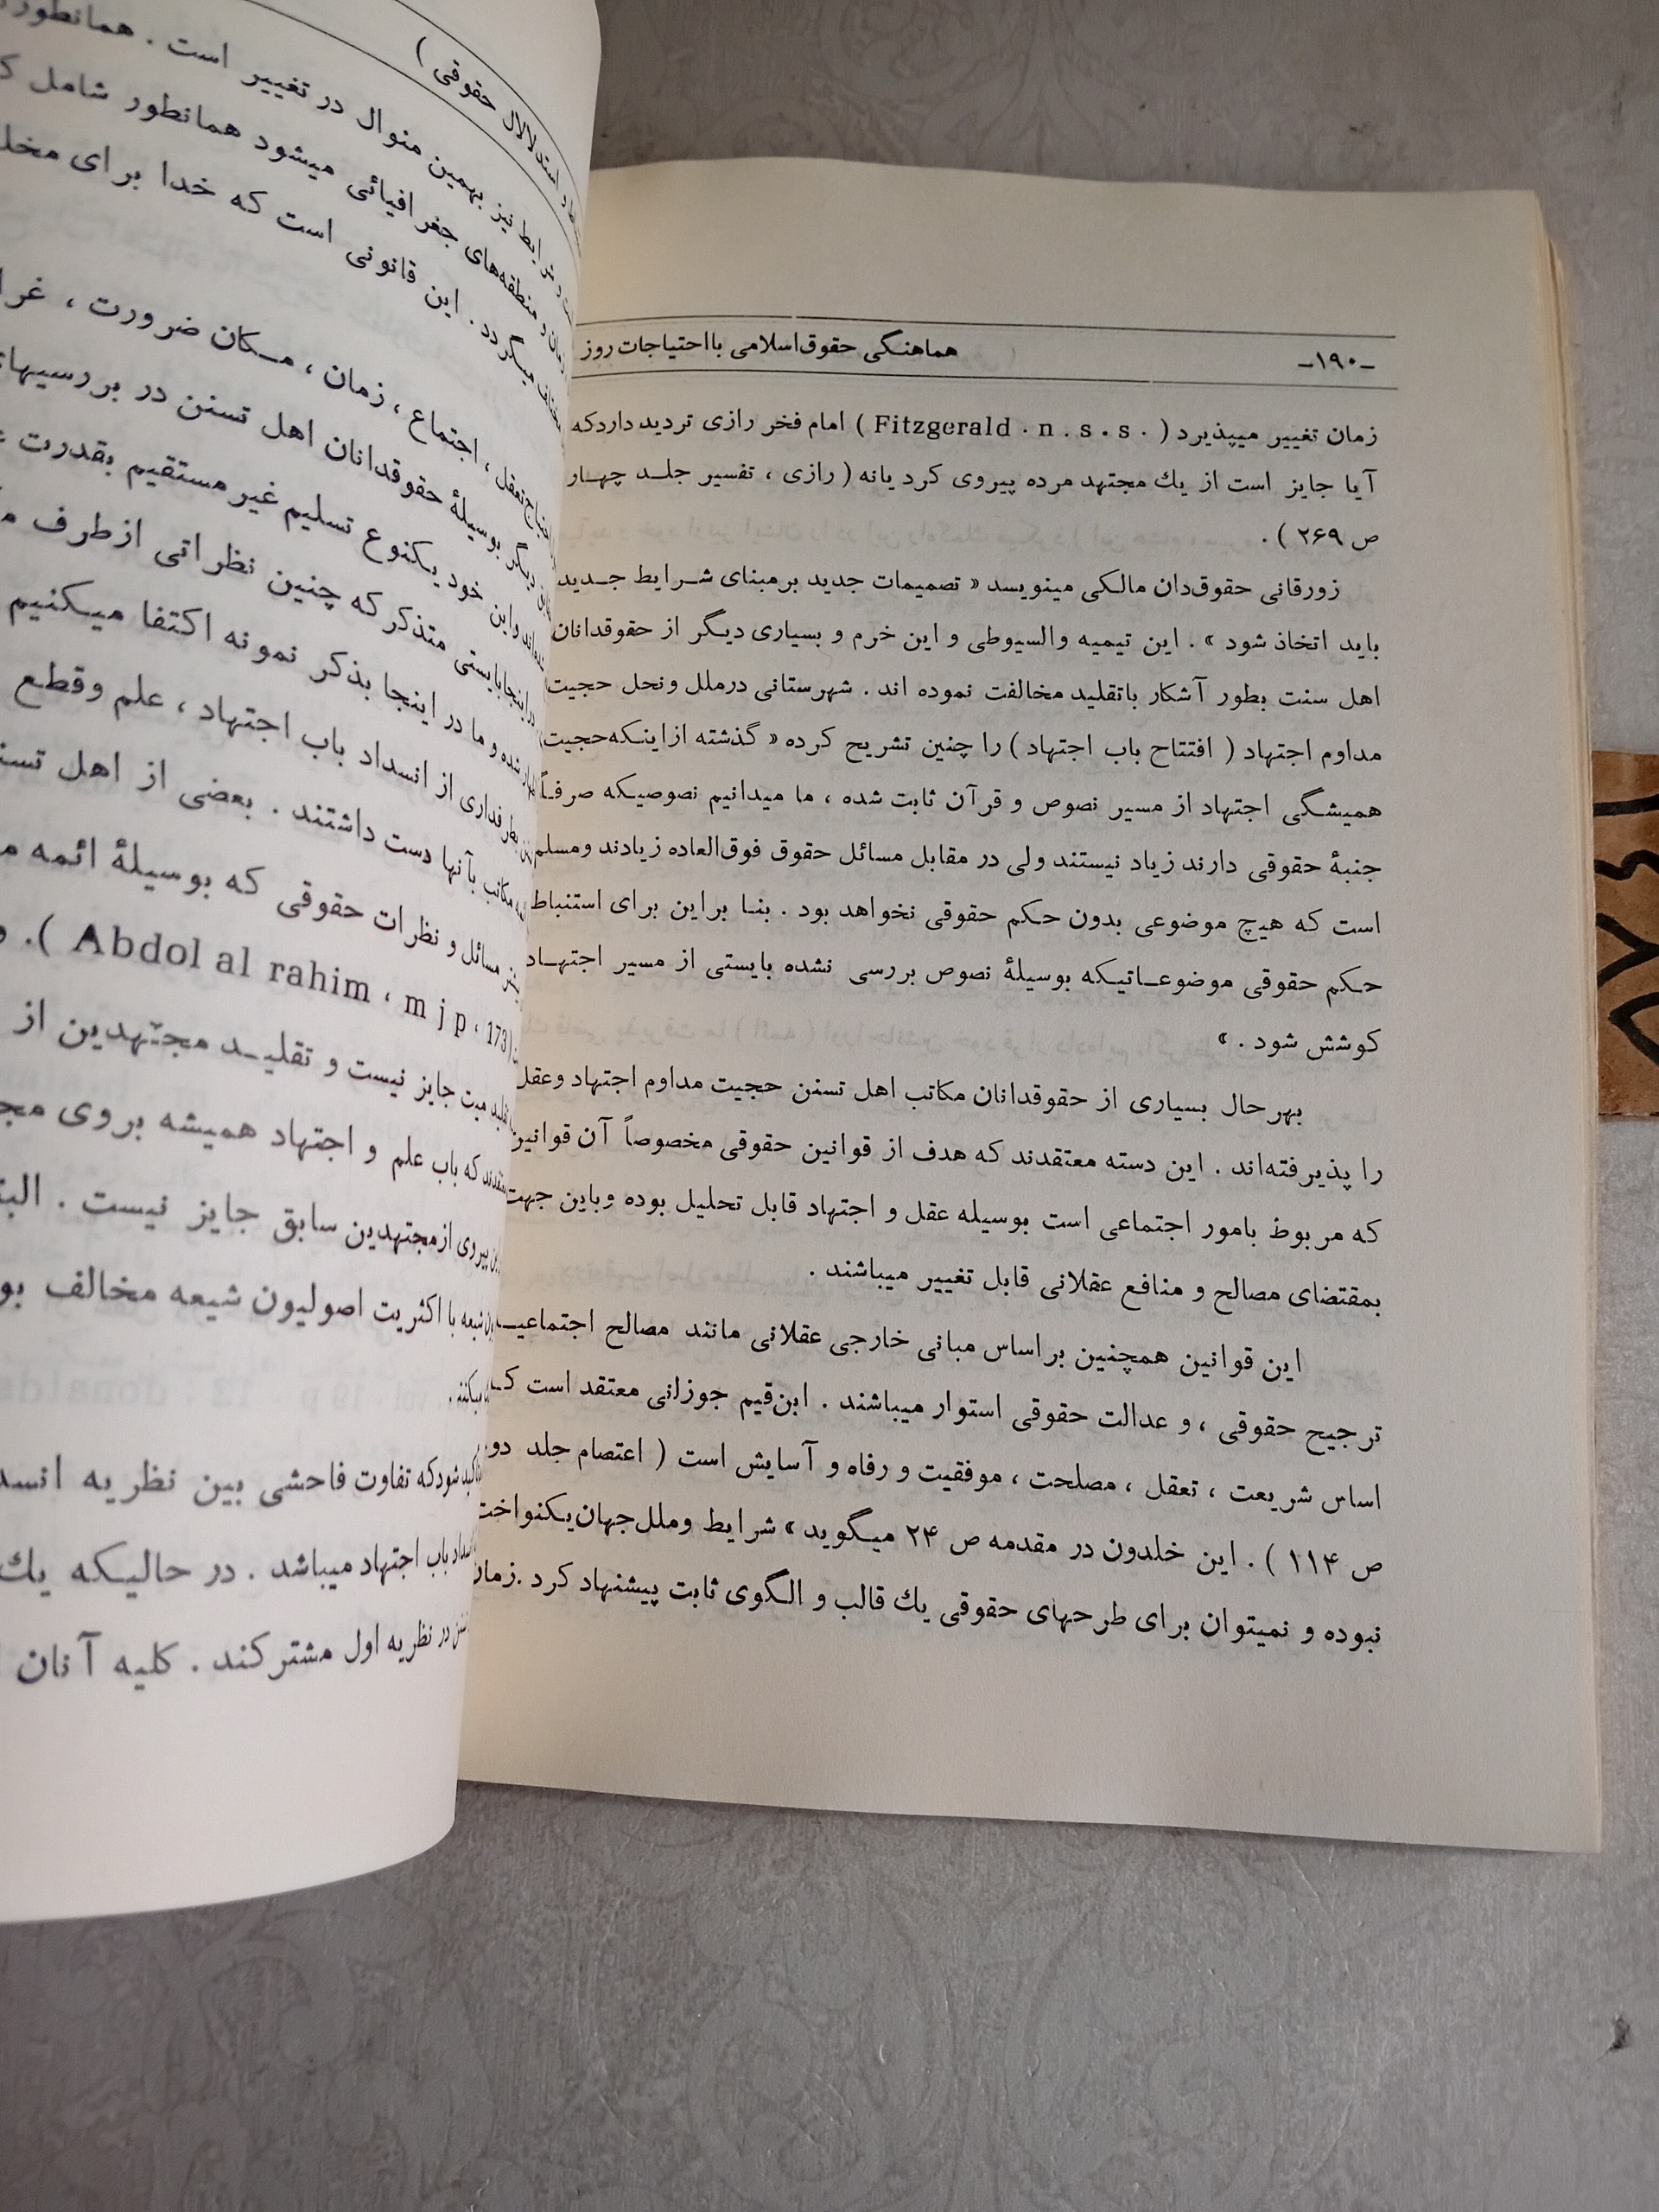 -۱۹۰-
هماهنگی حقوق‌اسلامی بااحتیاجات روز
زمان تغییر میپذیرد ( Fitzgerald . n . s . s . ) امام فخر رازی تردید داردکه
آیا جایز است از یك مجتهد مرده پیروی کرد یانه ( رازی ، تفسیر جلـد چهـار
ص ۲۶۹ ) .
زورقانی حقوق‌دان مالکی مینویسد « تصمیمات جدید برمبنای شـرایط جـدید
باید اتخاذ شود » . این تیمیه والسیوطی و این خرم و بسیاری دیگر از حقوقدانان
اهل سنت بطور آشکار باتقلید مخالفت نموده اند . شهرستانی درملل ونحل حجیت
مداوم اجتهاد ( افتتاح باب اجتهاد ) را چنین تشریح کرده « گذشته ازاینکه‌حجیت
همیشگی اجتهاد از مسیر نصوص و قرآن ثابت شده ، ما میدانیم نصوصیکه صرفـاً
جنبهٔ حقوقی دارند زیاد نیستند ولی در مقابل مسائل حقوق فوق‌العاده زیادند ومسلم
است که هیچ موضوعی بدون حکم حقوقی نخواهد بود . بنـا براین برای استنباط
حکم حقوقی موضوعـاتیکه بوسیلهٔ نصوص بررسی نشده بایستی از مسیر اجتهـاد
کوشش شود . »
بهرحال بسیاری از حقوقدانان مکاتب اهل تسنن حجیت مداوم اجتهاد وعقل
را پذیرفته‌اند . این دسته معتقدند که هدف از قوانین حقوقی مخصوصاً آن قوانین
که مربوط بامور اجتماعی است بوسیله عقل و اجتهاد قابل تحلیل بوده وباین جهت
بمقتضای مصالح و منافع عقلانی قابل تغییر میباشند .
این قوانین همچنین براساس مبانی خارجی عقلانی مانند مصالح اجتماعیـ
ترجیح حقوقی ، و عدالت حقوقی استوار میباشند . ابن‌قیم جوزانی معتقد است کـ
اساس شریعت ، تعقل ، مصلحت ، موفقیت و رفاه و آسایش است ( اعتصام جلد دو
ص ۱۱۴ ) . این خلدون در مقدمه ص ۲۴ میگوید » شرایط وملل‌جهان‌یکنواخت
نبوده و نمیتوان برای طرحهای حقوقی یك قالب و الگوی ثابت پیشنهاد کرد .زمان
استدلالال حقوقی )
نیز بهمین منوال در تغییر است . همانطور
منطقه‌های جغرافیائی میشود همانطور شامل
میگردد . این قانونی است که خدا برای
تعقل ، اجتماع ، زمان ، مکان ضرورت ،
دیگر بوسیلهٔ حقوقدانان اهل تسنن در بررسیهای
واین خود یکنوع تسلیم غیر مستقیم بقدرت
متذکرکه چنین نظراتی ازطرف
شده و ما در اینجا بذکر نمونه اکتفا میکنیم
طرفداری از انسداد باب اجتهاد ، علم وقطع
مکاتب بآنها دست داشتند . بعضی از اهل
مسائل و نظرات حقوقی که بوسیلهٔ ائمه
( Abdol al rahim ، m j p ، 173 ) .
میت جایز نیست و تقلیـد مجتهدین از
که باب علم و اجتهاد همیشه بروی
پیروی ازمجتهدین سابق جایز نیست .
شیعه با اکثریت اصولیون شیعه مخالف
میکنند .
شودکه تفاوت فاحشی بین نظریه
باب اجتهاد میباشد . در حالیکه یك
در نظریه اول مشترکند . کلیه آنان